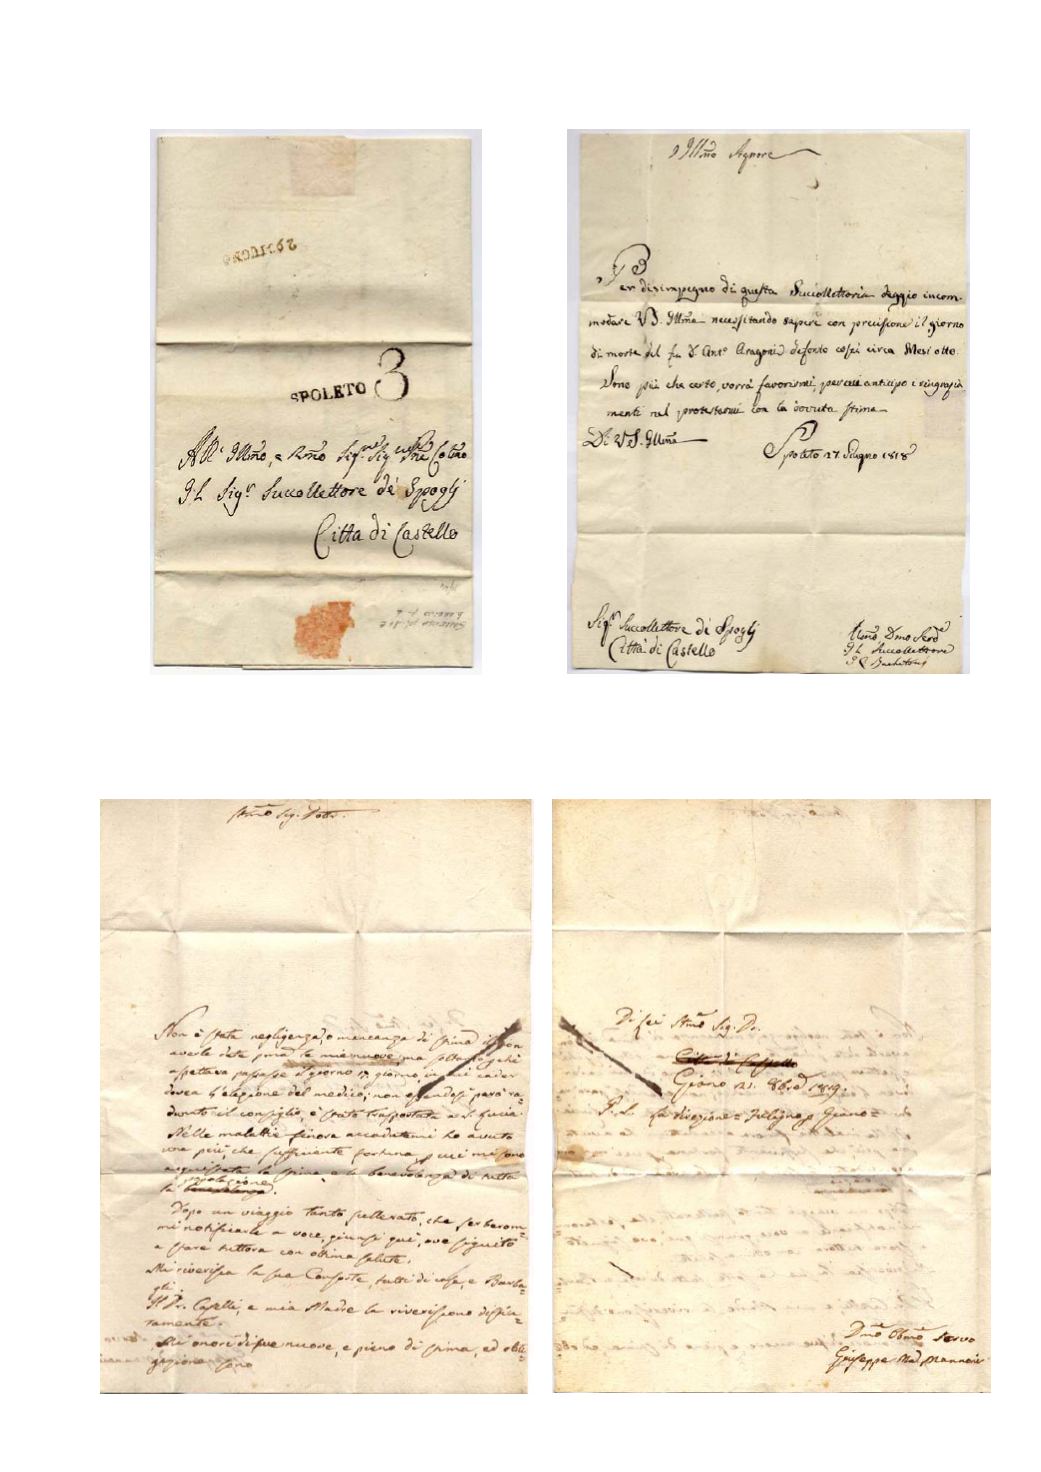 29 GIUGNO
SPOLETO 3
All' Illmo, e Rmo Sigr Sigr Colmo
Il Sigr Succollettore de' Spoglj
Città di Castello
Illmo Signore
Per disimpegno di questa Succollettoria deggio incom-
modare VS. Illma necessitando sapere con precisione il giorno
di morte del fu D. Anto Aragoni defonto costì circa Mesi otto.
Sono più che certo, vorrà favorirmi, percui anticipo i ringrazia
menti nel protestarmi con la dovuta stima
Di VS. Illma
Spoleto 27 Giugno 1818
Sigr Succollettore di Spoglj
Città di Castello
Umo Dmo Serve
Il Succollettore
Stmo Sig. Dott.
Non è stata negligenza, o mancanza di stima il non
averle date pma le mie nuove, ma soltanto, chè
aspettava passasse il giorno 17 giorno, in cui cader
dovea l'elezione del medico; non essendosi però ra-
dunato il consiglio, è stata trasportata a S. Lucia.
Nelle malattie finora accadutemi ho avuto
una più che sufficiente fortuna, p cui mi sono
acquistata la stima, e la benevolenza di tutta
la popolazione.
Dopo un viaggio tanto scellerato, che serberom-
mi notificarle a voce, giunsi quì, ove seguito
a stare tuttora con ottima salute.
Mi riverisca la sua Consorte, tutti di casa, e Barba-
gli.
Il Dr. Caselli, e mia Madre la riveriscono distin-
tamente.
Mi onori di sue nuove, e pieno di stima, ed obli-
gazione sono
Di Lei Stmo Sig. Dr.
Città di Castello
Giano 21. 8bre 1819.
P.S. La direzione = Foligno p Giano =
Dmo Obmo Servo
Giuseppe Ma Mannoni